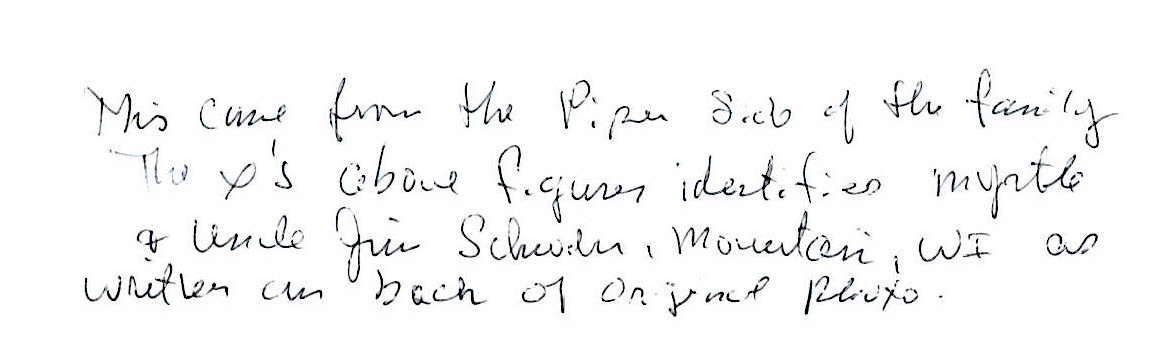 This came from the Piper side of the family
The x's above figures identifies Myrtle
& Uncle Jim , Mountain, WI as
written on back of original photo.